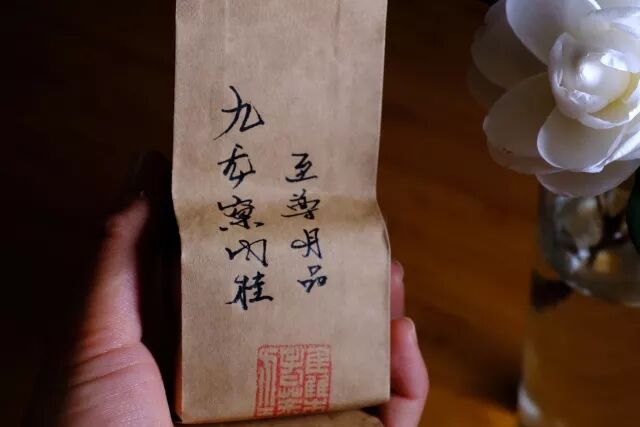 至尊明品
九龙窠肉桂